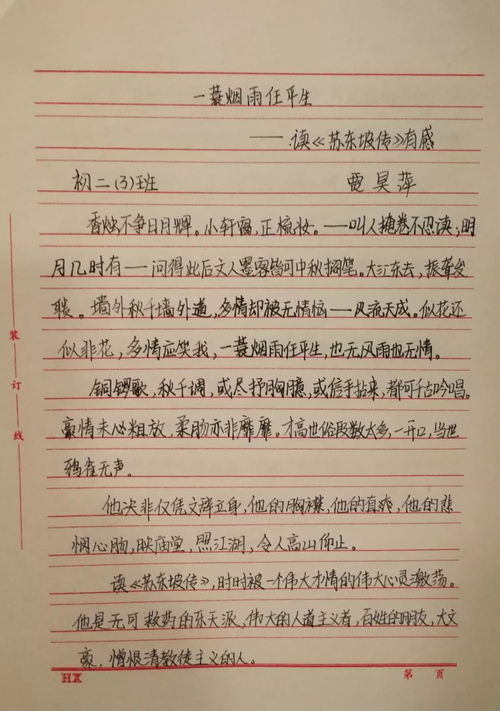 一蓑烟雨任平生
——读《苏东坡传》有感
初二(3)班 贾昊萍
香烛不争日月辉。小轩窗,正梳妆。——叫人掩卷不忍读;明
月几时有——问得此后文人墨客皆可中秋搁笔。大江东去,振聋发
聩。墙外秋千墙外道,多情却被无情恼——风流天成。似花还
似非花,多情应笑我,一蓑烟雨任平生,也无风雨也无情。
铜锣歌,秋千调,或尽抒胸臆,或信手拈来,都可千古吟唱。
豪情未必粗放,柔肠亦非靡靡。才高也俗段数太多,一开口,当世
鸦雀无声。
他决非仅凭文辞立身,他的胸襟,他的直爽,他的悲
悯心肠,映庙堂,照江湖,令人高山仰止。
读《苏东坡传》,时时被一个伟大才情的伟大心灵激荡。
他是无可救药的乐天派,伟大的人道主义者,百姓的朋友,大文
豪,憎恨清教徒主义的人。
装订线
HX 第 页